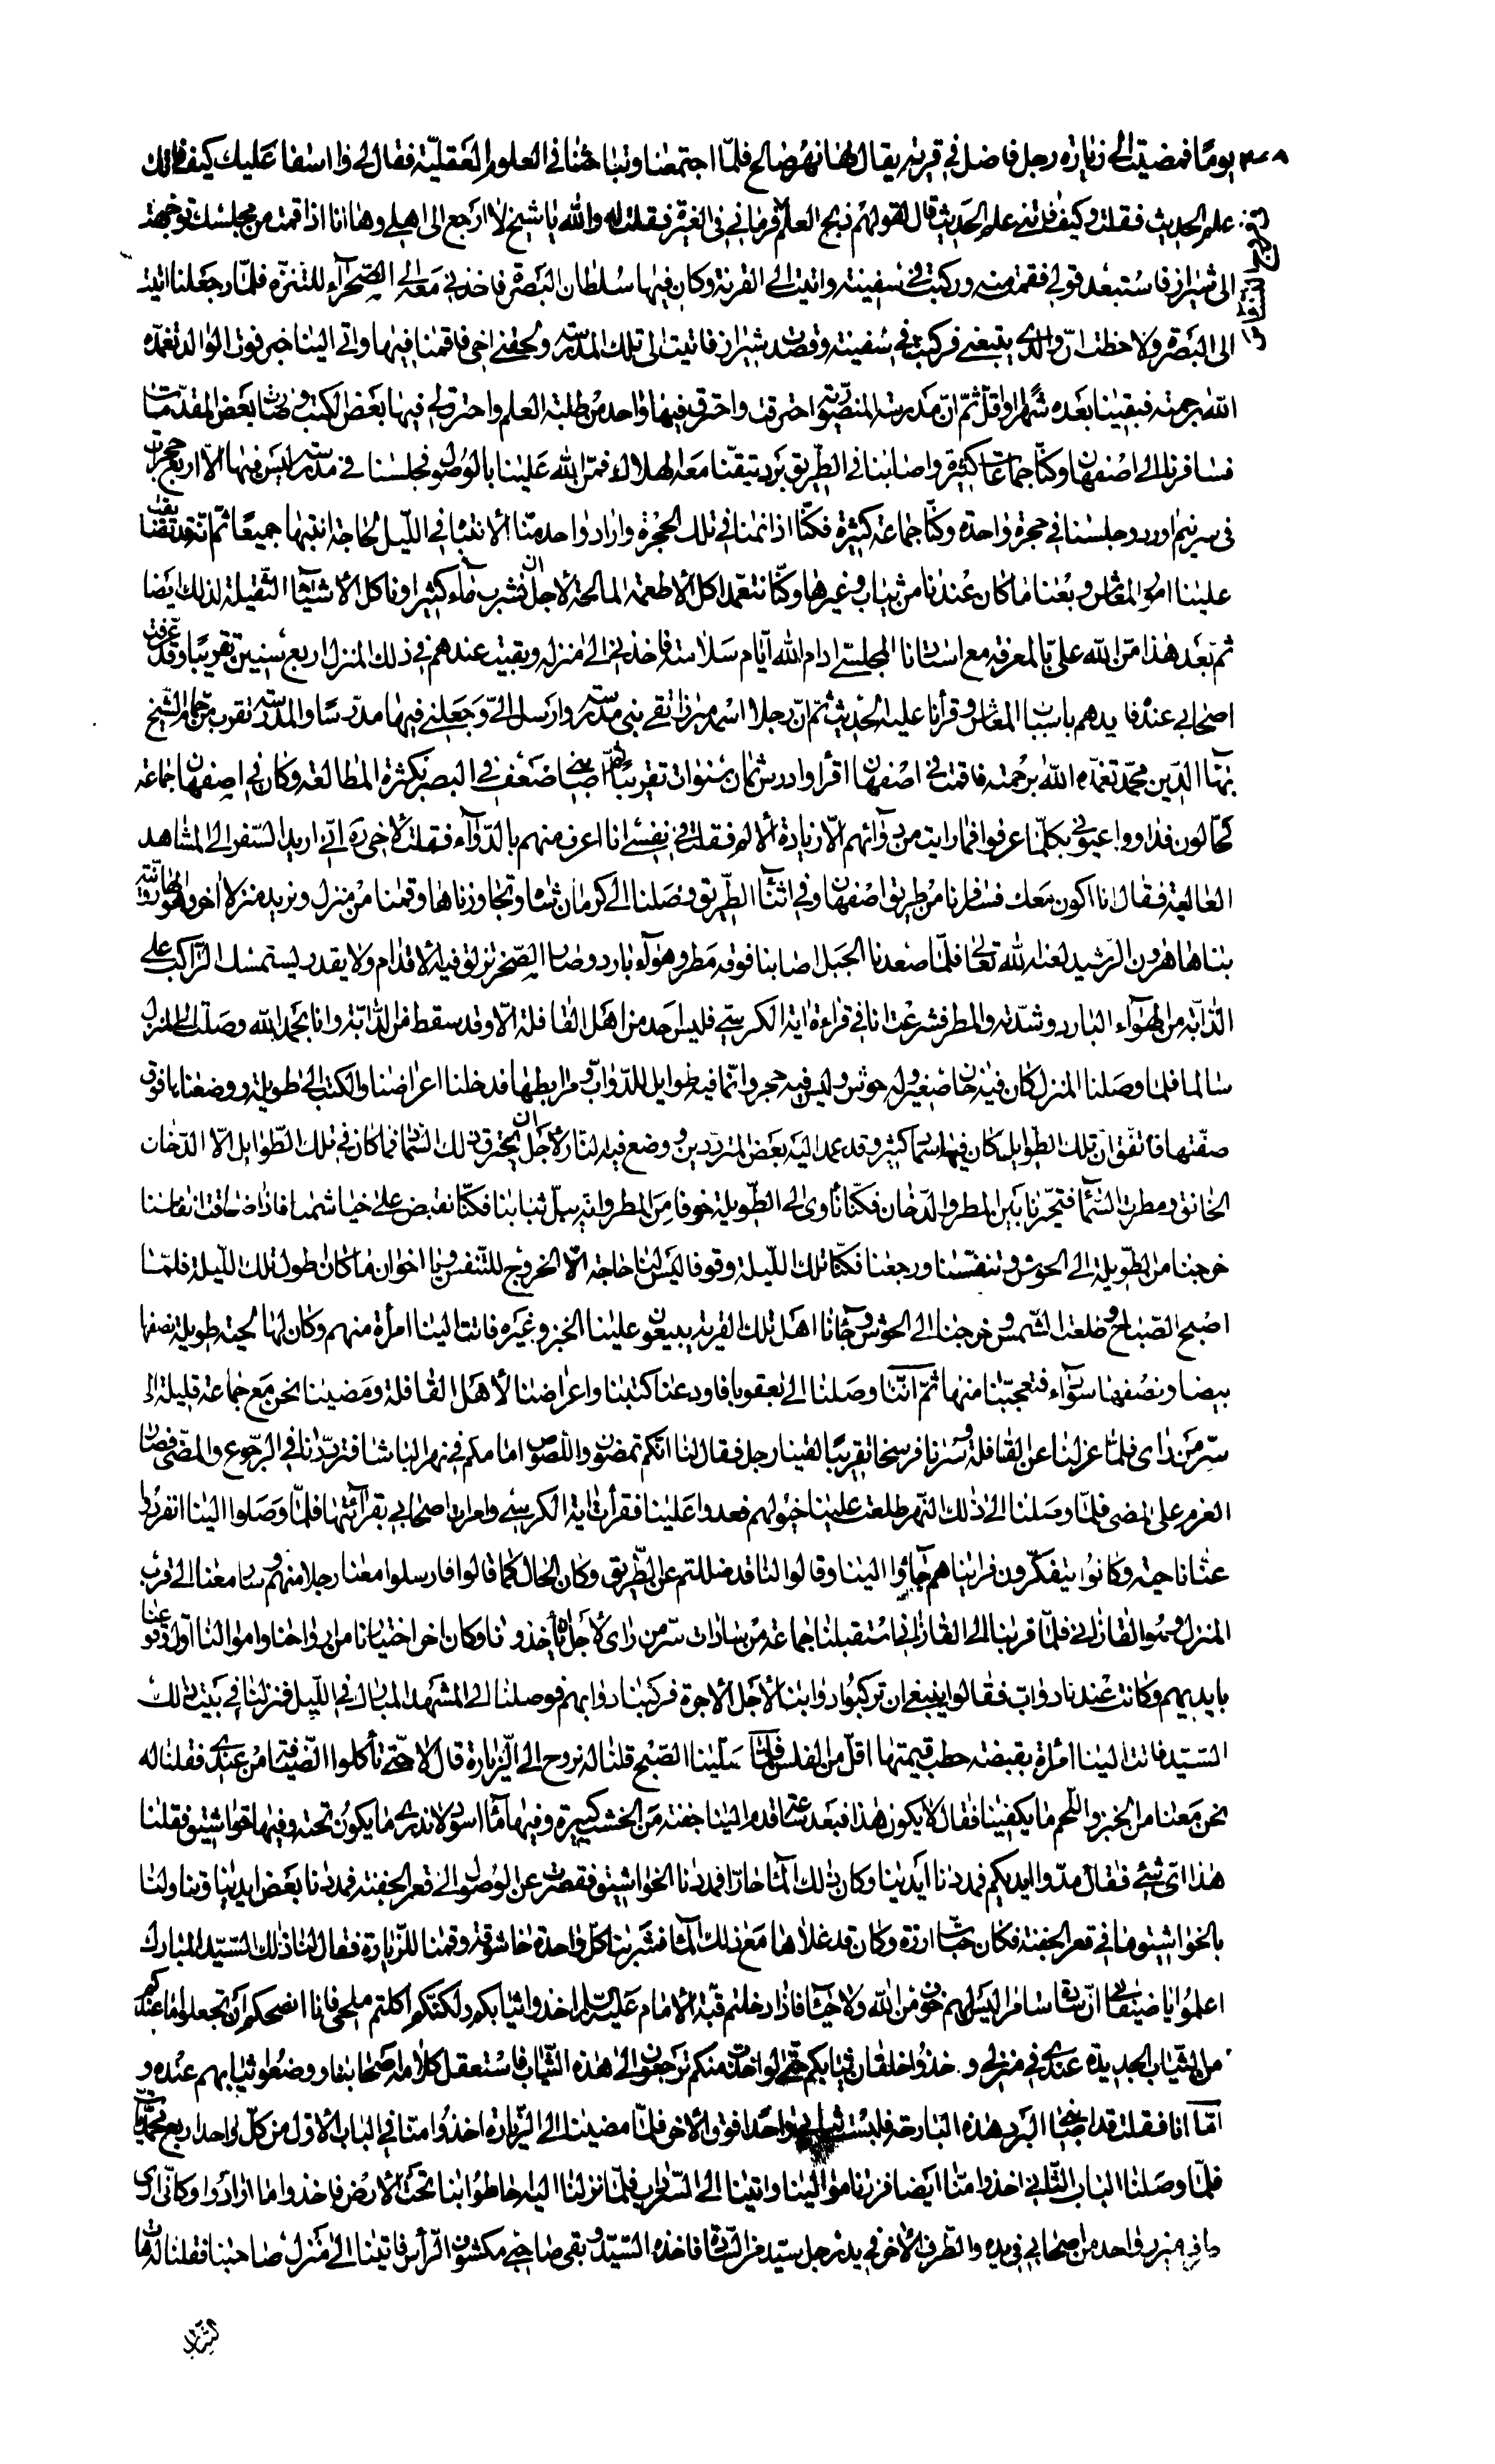 يومًا فمضيت الى زيارة رجل فاضل في قرية يقال لها نهر صالح فلمّا اجتمعنا وتباحثنا في العلوم العقلية فقال لي وا اسفا عليك كيف فاتك
علم الحديث فقلت وكيف فاتني علم الحديث قال لقولهم ذبح العلم في فروج النساء فقلت له والله يا شيخ لا ارجع الى اهلي وها انا اذا قمت من مجلسك توجهت
الى شيراز فاستبعد قولي فقمت منه وركبت في سفينة واتيت الى القرنة وكان فيها سلطان البصرة فاخذني معه الى الصحراء للتنزه فلمّا رجعنا اتيت
الى البصرة ولاحظت انّ والدي يتبعني فركبت في سفينة وقصدت شيراز فاتيت الى تلك المدرسة ولحقني اخي فاقمنا فيها واتى الينا خبر فوت الوالد تغمده
الله برحمته فبقينا بعده شهرا واقل ثمّ انّ مدرسة المنصورية احترقت واحترق فيها واحد من طلبة العلم واحترق لي فيها بعض الكتب وبعض المقدمات
فسافرنا الى اصفهان وكنّا جماعات كثيرة واصابنا في الطريق برد تيقنا معه الهلاك فمنّ الله علينا بالوصول فجلسنا في مدرسة ليس فيها الا اربع حجرات
في سرنيم اورد وجلسنا في حجرة واحدة وكنّا جماعة كثيرة فكنّا اذا نمنا في تلك الحجرة واراد واحد منّا الانتباه في الليل لحاجة انتبهنا جميعًا ثمّ انّه قد تضيقت
علينا امور المعاش وبعنا ما كان عندنا من ثياب وغيرها وكنّا نتعمد اكل الاطعمة المالحة لاجل ان نشرب ماء كثيرا وناكل الاشياء الثقيلة لذلك ايضا
ثمّ بعد هذا منّ الله عليّ بالمعرفة مع استادنا المجلسي ادام الله ايّام سلامته فاخذني الى منزله وبقيت عندهم في ذلك المنزل اربع سنين تقريبا وقد عرفت
اصحابي عنده فايدهم باسباب المعاش وقرأنا عليه الحديث ثمّ انّ رجلا اسمه ميرزا تقي بنى مدرسة وارسل اليّ وجعلني فيها مدرسا والمدرسة تقرب من حمام الشيخ
بهاء الدين محمد تغمده الله برحمته فاقمت في اصفهان اقرأ وادرس ثمان سنوات تقريبا ثمّ اصابني ضعف في البصر بكثرة المطالعة وكان في اصفهان جماعة
كحّالون فداووا عيوني بكلّما عرفوا فما رايت من دوائهم الا زيادة الالم فقلت في نفسي انا اعرف منهم بالدواء فقلت لاخي ره انّي اريد السفر الى المشاهد
العالية فقال انا اكون معك فسافرنا من طريق اصفهان وفي اثناء الطريق وصلنا الى كرمان شاه وتجاوزناها وقمنا من منزل ونريد منزلا اخر وهو الهارونية
بناها هرون الرشيد لعنه الله تعالى فلمّا صعدنا الجبل اصابنا فوقه مطر وهواء بارد وصار الصخر تزلق فيه الاقدام ولا يقدر يستمسك الراكب على
الدابة من الهواء البارد وشدته والمطر فشرعت انا في قراءة اية الكرسي فليس احد من اهل القافلة الا وقد سقط من الدابة وانا بحمد الله وصلت الى المنزل
سالما فلمّا وصلنا المنزل كان فيه خان صغير وله حوش وليس فيه حجر وانّما فيه طوايل للدواب ومرابطها فدخلنا اعراضنا والكتب الى طويلة ووضعناها فوق
صفّتها فاتفق انّ تلك الطوايل كان فيها سماد كثير وقد عمد اليه بعض المترددين ووضع فيه النار لاجل ان يحترق ذلك السماد فما كان في تلك الطوايل الا الدخان
الخانق ومطرت السماء فتحيّرنا بين المطر والدخان فكنّا ناوي الى الطويلة خوفا من المطر وانه يبلّ ثيابنا فكنّا نقبض على خياشمنا فاذا ضاقت انفاسنا
خرجنا من الطويلة الى الحوش وتنفّسنا ورجعنا فكنّا تلك الليلة وقوفا ليس لنا حاجة الا الخروج للتنفس ويا اخوان ما كان اطول تلك الليلة فلمّا
اصبح الصباح وطلعت الشمس خرجنا الى الحوش وجاءنا اهل تلك القرية يبيعون علينا الخبز وغيره فاتت الينا امرأة منهم وكان لها لحية طويلة نصفها
بيضاء ونصفها سوداء فتعجبنا منها ثمّ انّنا وصلنا الى بعقوبا فاودعنا كتبنا واعراضنا لاهل القافلة ومضينا نحن مع جماعة قليلة الى
سرّ من راى فلمّا عزلنا عن القافلة وسرنا فرسخا تقريبا لقينا رجل فقال لنا انّكم تمضون واللصوص امامكم في نهر الباشا فتردّدنا في الرجوع والمضى فصار
العزم على المضى فلمّا وصلنا الى ذلك النهر طلعت علينا خيولهم فعدوا علينا فقرأت اية الكرسي وامرت اصحابي بقرائتها فلمّا وصلوا الينا انفردوا
عنّا ناحية وكانوا يتفكّرون فرايناهم جاؤا الينا وقالوا لنا قد ضللتم عن الطريق وكان الحال كما قالوا فارسلوا معنا رجلا منهم وسار معنا الى قرب
المنزل وسمّوه القازاني فلمّا قربنا الى القازاني استقبلنا جماعة من سادات سرّ من راى لاجل ان يأخذونا وكان اخر اختيارنا من ارواحنا واموالنا اول وقوعنا
بايديهم وكانت عندنا دواب فقالوا ينبغي ان تركبوا دوابنا لاجل الاجرة فركبنا دوابهم فوصلنا الى المشهد المبارك في الليل فنزلنا في بيت ذلك
السيد فاتت الينا امرأة بقبضة حطب قيمتها اقل من الفلس فلمّا صلّينا الصبح قلنا له نروح الى الزيارة قال لا حتّى تأكلوا الضيافة من عندي فقلنا له
نحن معنا من الخبز واللحم ما يكفينا فقال لا يكون هذا فبعد ساعة قدم الينا جفنة من الخشب كبيرة وفيها ماء اسود لا ندري ما يكون تحته وفيها خواشيق فقلنا
هذا اي شيء فقال مدّوا ايديكم فمددنا ايدينا وكان ذلك الماء حارّا فمددنا الخواشيق فقصرت عن الوصول الى قعر الجفنة فمددنا بعض ايدينا وتناولنا
بالخواشيق ما في قعر الجفنة فكان حبّات ارزة وكان قد غلاها مع ذلك الماء فشربنا كلّ واحدة خاشوقة وقمنا للزيارة فقال لنا ذلك السيّد المبارك
اعلموا يا ضيفاني انّ سادة سامرا ليس لهم خوف من الله ولا حياء فاذا دخلتم قبّة الامام عليه السلام اخذوا ثيابكم ولكنّكم اكلتم ملحي فانا انصحكم ان تجعلوا ما عندكم
من الثياب الجديدة عندي في منزلي وخذوا خلقان ثيابكم حتّى لو اخذت منكم ترجعون الى هذه الثياب فاستعقل كلامه اصحابنا ووضعوا ثيابهم عنده و
امّا انا فقلت قد اصابني البرد هذه البارحة فلبست ثيابي واحدا فوق الاخر فلمّا مضينا الى الزيارة اخذوا منّا في الباب الاول من كلّ واحد اربع محمديات
فلمّا وصلنا الباب الثاني اخذوا منّا ايضا فزرنا موالينا واتينا الى السرداب فلمّا نزلنا اليه احاطوا بنا تحت الارض فاخذوا ما ارادوا وكانّي ارى
طرف ميزر واحد من اصحابي في يده والطرف الاخر في يد رجل سيد من السادة فاخذه السيّد وبقى صاحبي مكشوف الرأس فاتينا الى منزل صاحبنا فقلنا له هات
الثياب